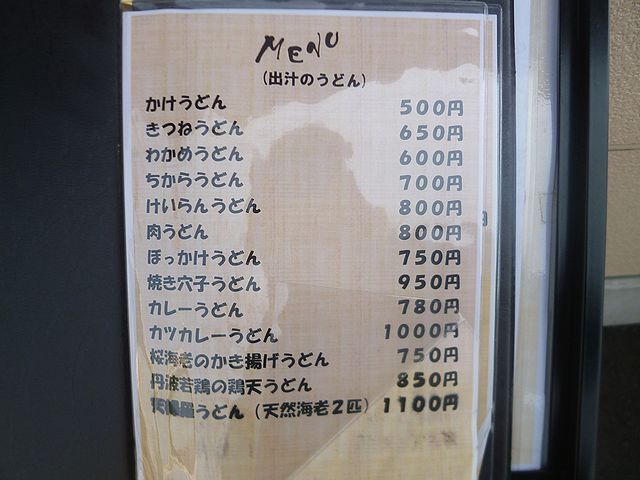 MENU
(出汁のうどん)
かけうどん 500円
きつねうどん 650円
わかめうどん 600円
ちからうどん 700円
けいらんうどん 800円
肉うどん 800円
ぼっかけうどん 750円
焼き穴子うどん 950円
カレーうどん 780円
カツカレーうどん 1000円
桜海老のかき揚げうどん 750円
丹波若鶏の鶏天うどん 850円
うどん (天然海老2匹) 1100円